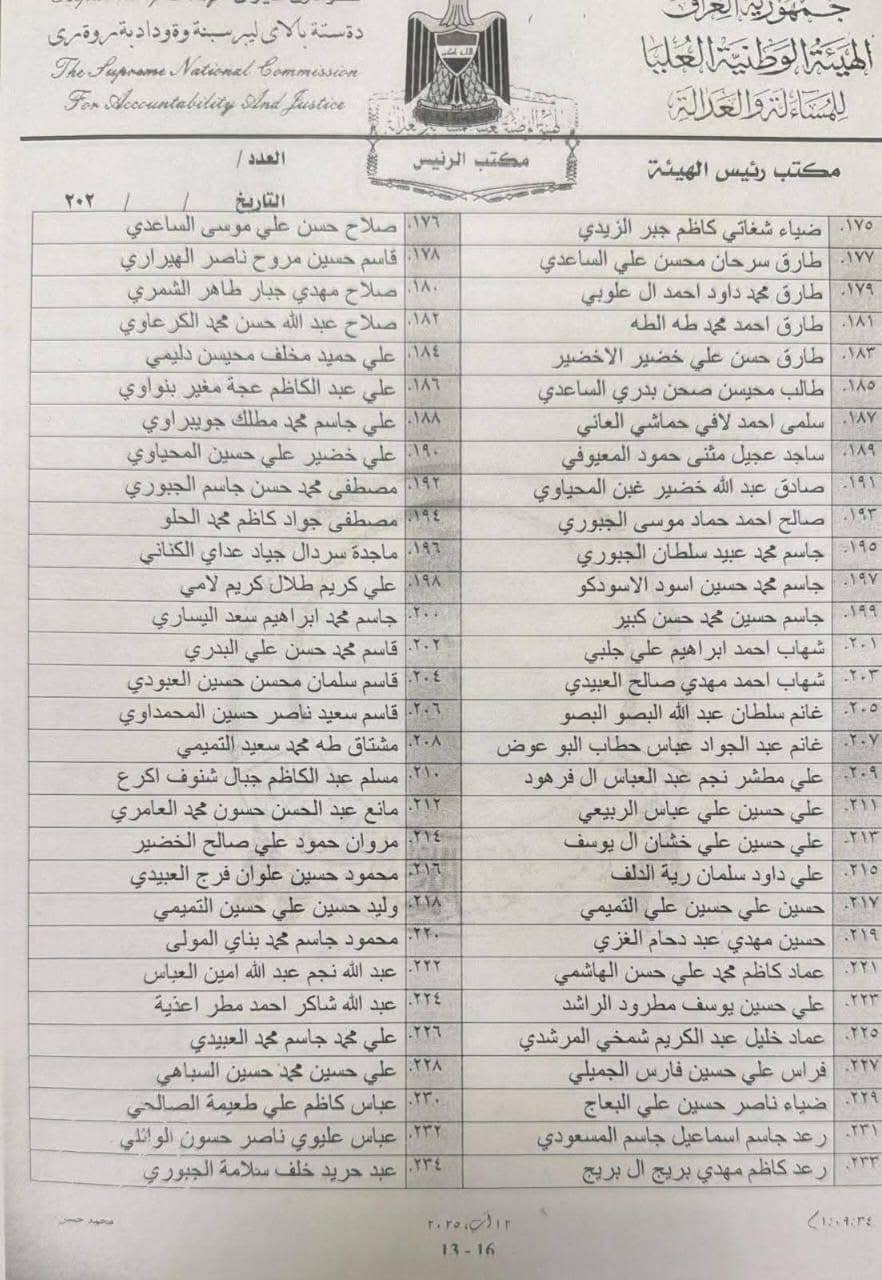 جمهورية العراق
الهيئة الوطنية العليا
للمساءلة والعدالة
دةستةى بالاى ليبرسينةوةودادبةروةرى
The Supreme National Commission
For Accountability And Justice
الله اكبر
مكتب رئيس الهيئة
مكتب الرئيس
العدد /
التاريخ / / ٢٠٢
١٧٥. ضياء شغاتي كاظم جبر الزيدي ١٧٦. صلاح حسن علي موسى الساعدي
١٧٧. طارق سرحان محسن علي الساعدي ١٧٨. قاسم حسين مروح ناصر الهيراري
١٧٩. طارق محمد داود احمد ال علوبي ١٨٠. صلاح مهدي جبار طاهر الشمري
١٨١. طارق احمد محمد طه الطه ١٨٢. صلاح عبد الله حسن محمد الكرعاوي
١٨٣. طارق حسن علي خضير الاخضير ١٨٤. علي حميد مخلف محيسن دليمي
١٨٥. طالب محيسن صحن بدري الساعدي ١٨٦. علي عبد الكاظم عجة مغير بنواوي
١٨٧. سلمى احمد لافي حماشي العاني ١٨٨. علي جاسم محمد مطلك جويبراوي
١٨٩. ساجد عجيل مثنى حمود المعيوفي ١٩٠. علي خضير علي حسين المحياوي
١٩١. صادق عبد الله خضير غبن المحياوي ١٩٢. مصطفى محمد حسن جاسم الجبوري
١٩٣. صالح احمد حماد موسى الجبوري ١٩٤. مصطفى جواد كاظم محمد الحلو
١٩٥. جاسم محمد عبيد سلطان الجبوري ١٩٦. ماجدة سردال جياد عداي الكناني
١٩٧. جاسم محمد حسين اسود الاسودكو ١٩٨. علي كريم طلال كريم لامي
١٩٩. جاسم حسين محمد حسن كبير ٢٠٠. جاسم محمد ابراهيم سعد اليساري
٢٠١. شهاب احمد ابراهيم علي جلبي ٢٠٢. قاسم محمد حسن علي البدري
٢٠٣. شهاب احمد مهدي صالح العبيدي ٢٠٤. قاسم سلمان محسن حسين العبودي
٢٠٥. غانم سلطان عبد الله البصو البصو ٢٠٦. قاسم سعيد ناصر حسين المحمداوي
٢٠٧. غانم عبد الجواد عباس حطاب البو عوض ٢٠٨. مشتاق طه محمد سعيد التميمي
٢٠٩. علي مطشر نجم عبد العباس ال فرهود ٢١٠. مسلم عبد الكاظم جبال شنوف اكرع
٢١١. علي حسين علي عباس الربيعي ٢١٢. مانع عبد الحسن حسون محمد العامري
٢١٣. علي حسين علي خشان ال يوسف ٢١٤. مروان حمود علي صالح الخضير
٢١٥. علي داود سلمان رية الدلف ٢١٦. محمود حسين علوان فرج العبيدي
٢١٧. حسين علي حسين علي التميمي ٢١٨. وليد حسين علي حسين التميمي
٢١٩. حسين مهدي عبد دحام الغزي ٢٢٠. محمود جاسم محمد بناي المولى
٢٢١. عماد كاظم محمد علي حسن الهاشمي ٢٢٢. عبد الله نجم عبد الله امين العباس
٢٢٣. علي حسين يوسف مطرود الراشد ٢٢٤. عبد الله شاكر احمد مطر اعذية
٢٢٥. عماد خليل عبد الكريم شمخي المرشدي ٢٢٦. علي محمد جاسم محمد العبيدي
٢٢٧. فراس علي حسين فارس الجميلي ٢٢٨. علي حسين محمد حسين السباهي
٢٢٩. ضياء ناصر حسين علي البعاج ٢٣٠. عباس كاظم علي طعيمة الصالحي
٢٣١. رعد جاسم اسماعيل جاسم المسعودي ٢٣٢. عباس عليوي ناصر حسون الوائلي
٢٣٣. رعد كاظم مهدي بريج ال بريج ٢٣٤. عبد حريد خلف سلامة الجبوري
١٠:٠٩:٣٤ ١٢/آب/٢٠٢٥ محمد حسن
13 - 16